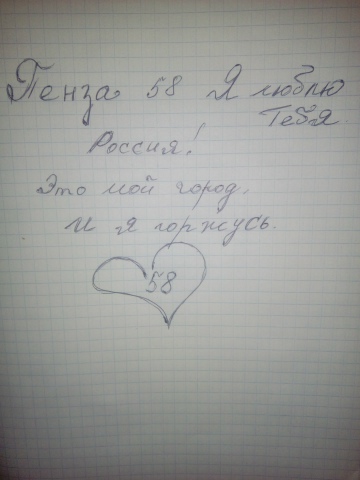 Пенза 58 Я люблю
Тебя
Россия!
Это мой город,
и я горжусь.
58